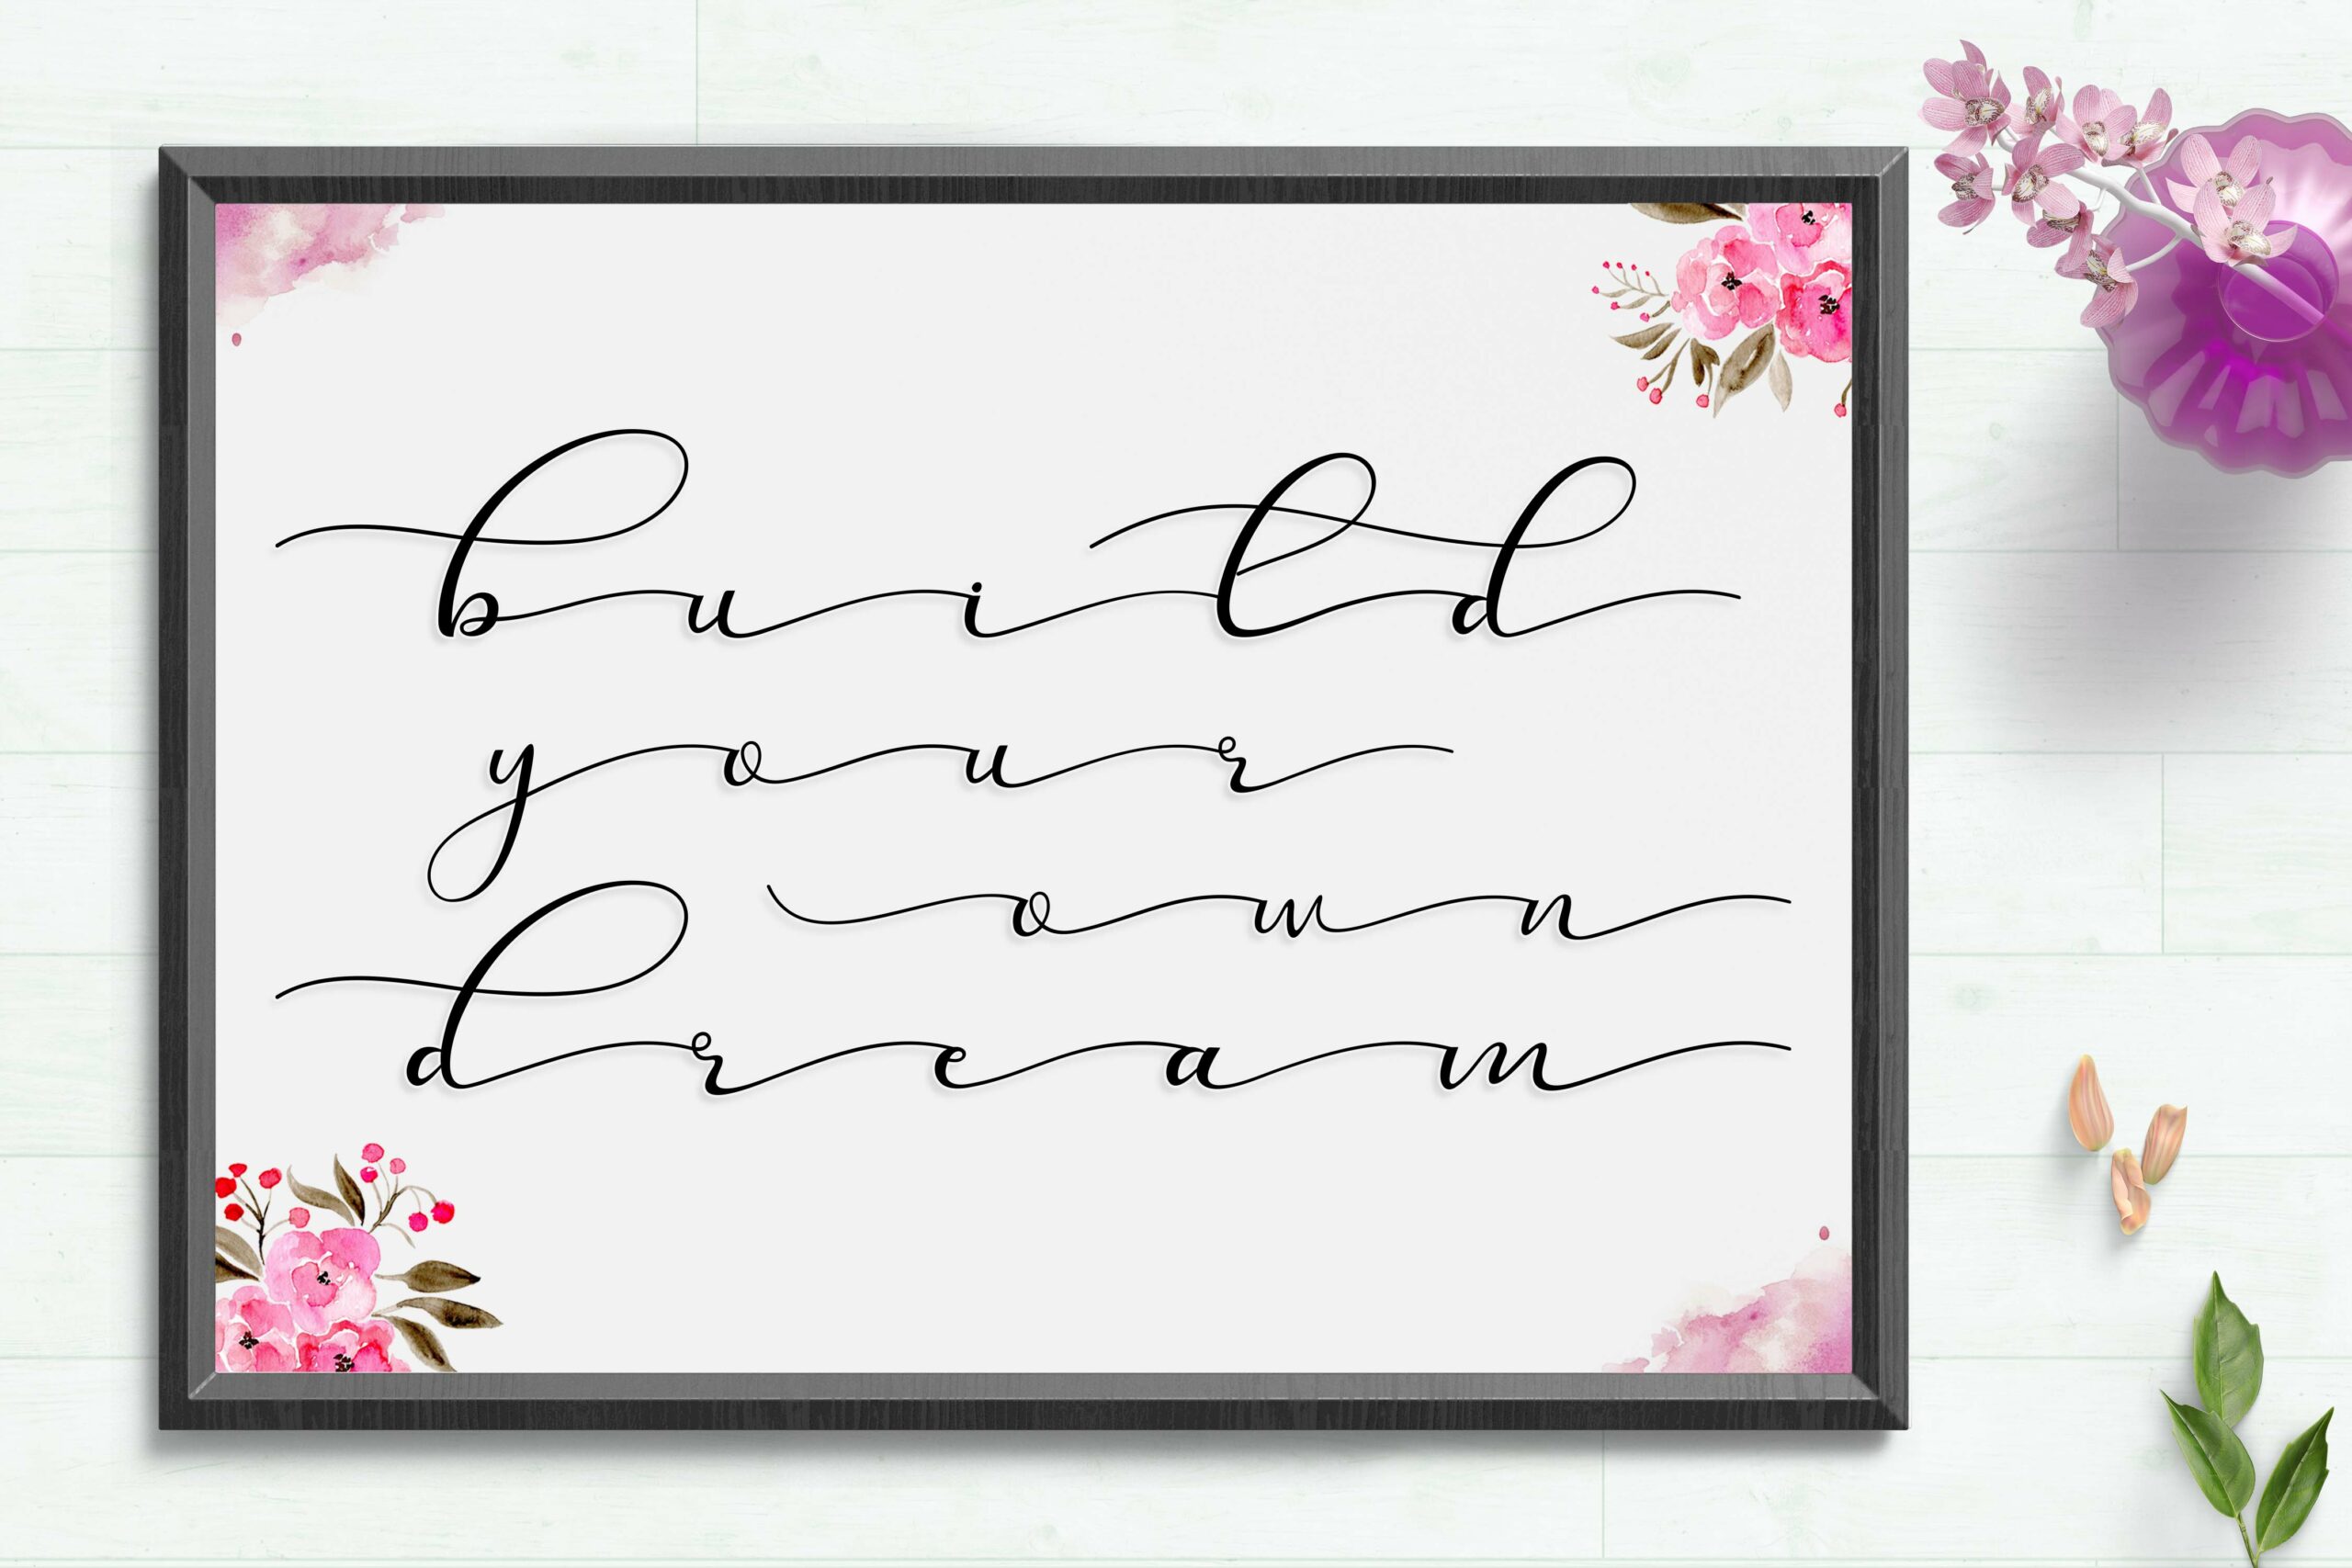 build
your
own
dream